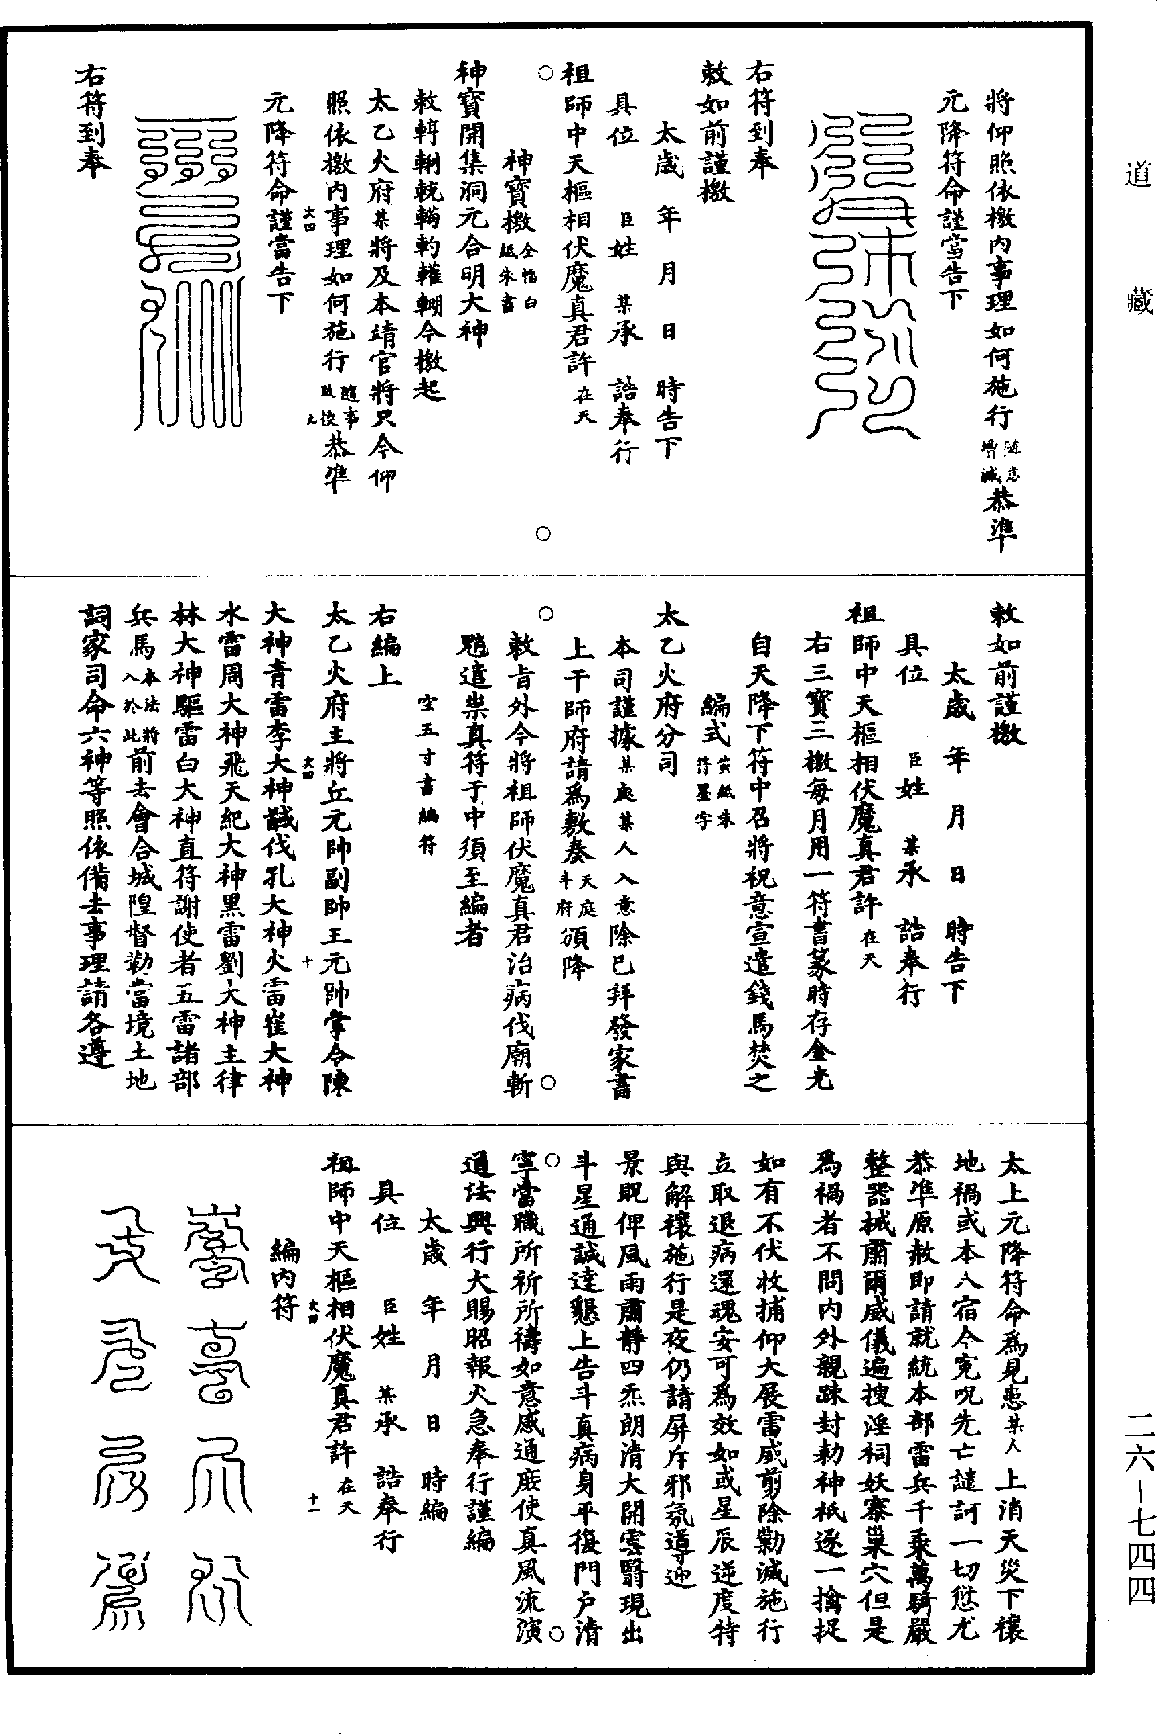 道藏
將仰照依檄內事理如何施行隨意增減恭準
元降符命謹當告下
右符到奉
敕如前謹檄
太歲 年 月 日 時告下
具位 臣姓 某承 誥奉行
祖師中天樞相伏魔真君許在天
神寶檄全幅白紙朱書
神寶開集洞元合明大神
敕 今檄起
太乙火府某將及本靖官將只今仰
照依檄內事理如何施行隨事改換恭準
元降符命謹當告下
右符到奉
敕如前謹檄
太歲 年 月 日 時告下
具位 臣姓 某承 誥奉行
祖師中天樞相伏魔真君許在天
右三寶三檄每月用一符書篆時存金光
自天降下符中召將祝意宣遣錢馬焚之
編式黃紙朱符墨字
太乙火府分司
本司謹據某處某人入意除已拜發家書
上干師府請為敷奏天庭斗府頒降
敕旨外今將祖師伏魔真君治病伐廟斬
魈遣祟真符于中須至編者
空五寸書編符
右編上
太乙火府主將丘元帥副帥王元帥掌令陳
大神青雷李大神 伐孔大神火雷崔大神
水雷周大神飛天紀大神黑雷劉大神主律
林大神驅雷白大神直符謝使者五雷諸部
兵馬本法將入於此前去會合城隍督勒當境土地
詞家司命六神等照依備去事理請各遵
太上元降符命為見患某人上消天災下禳
地禍或本人宿今冤呪先亡譴訶一切愆尤
恭準原赦即請就統本部雷兵千乘萬騎嚴
整器械肅爾威儀遍搜淫祠妖寨巢穴但是
為禍者不問內外親踈封勑神祇逐一擒捉
如有不伏收捕仰大展雷威剪除勦滅施行
立取退病還魂安可為效如或星辰逆度特
與解禳施行是夜仍請屏斥邪氛導迎
景貺俾風雨肅靜四炁朗清大開雲翳現出
斗星通誠達懇上告斗真病身平復門戶清
寧當職所祈所禱如意感通庶使真風流演
道法興行大賜昭報火急奉行謹編
太歲 年 月 日 時編
具位 臣姓 某承 誥奉行
祖師中天樞相伏魔真君許在天
編內符
二六—七四四